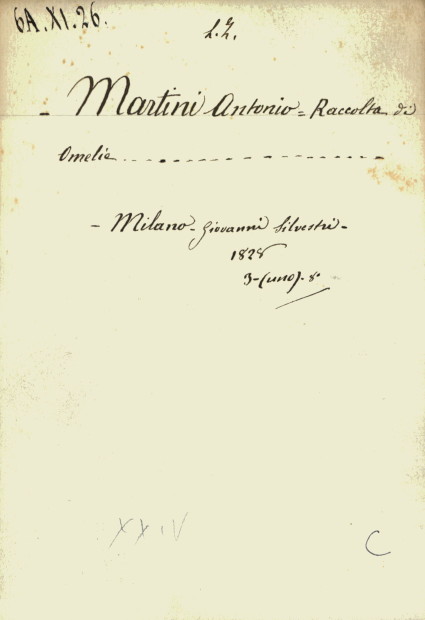 6A.XI.26.
L.Z.
- Martini Antonio = Raccolta di
Omelie
- Milano - Giovanni Silvestri -
1828
3-(uno)-8°
XXIV
C